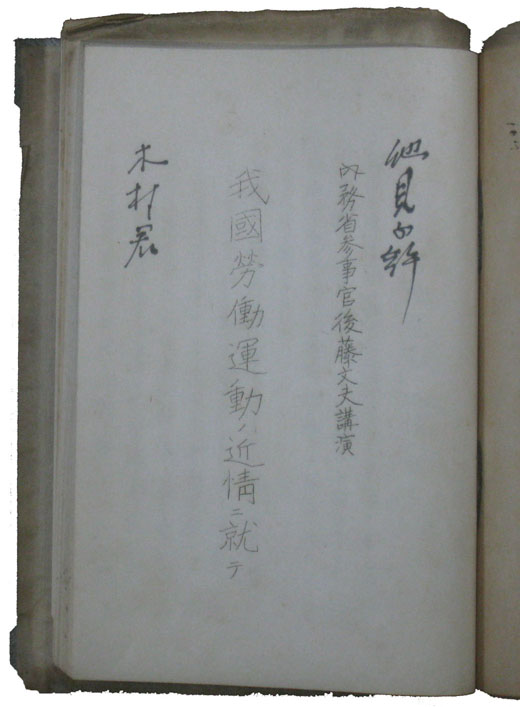 他見不許
内務省参事官後藤文夫講演
我國勞働運動ノ近情ニ就テ
木村君